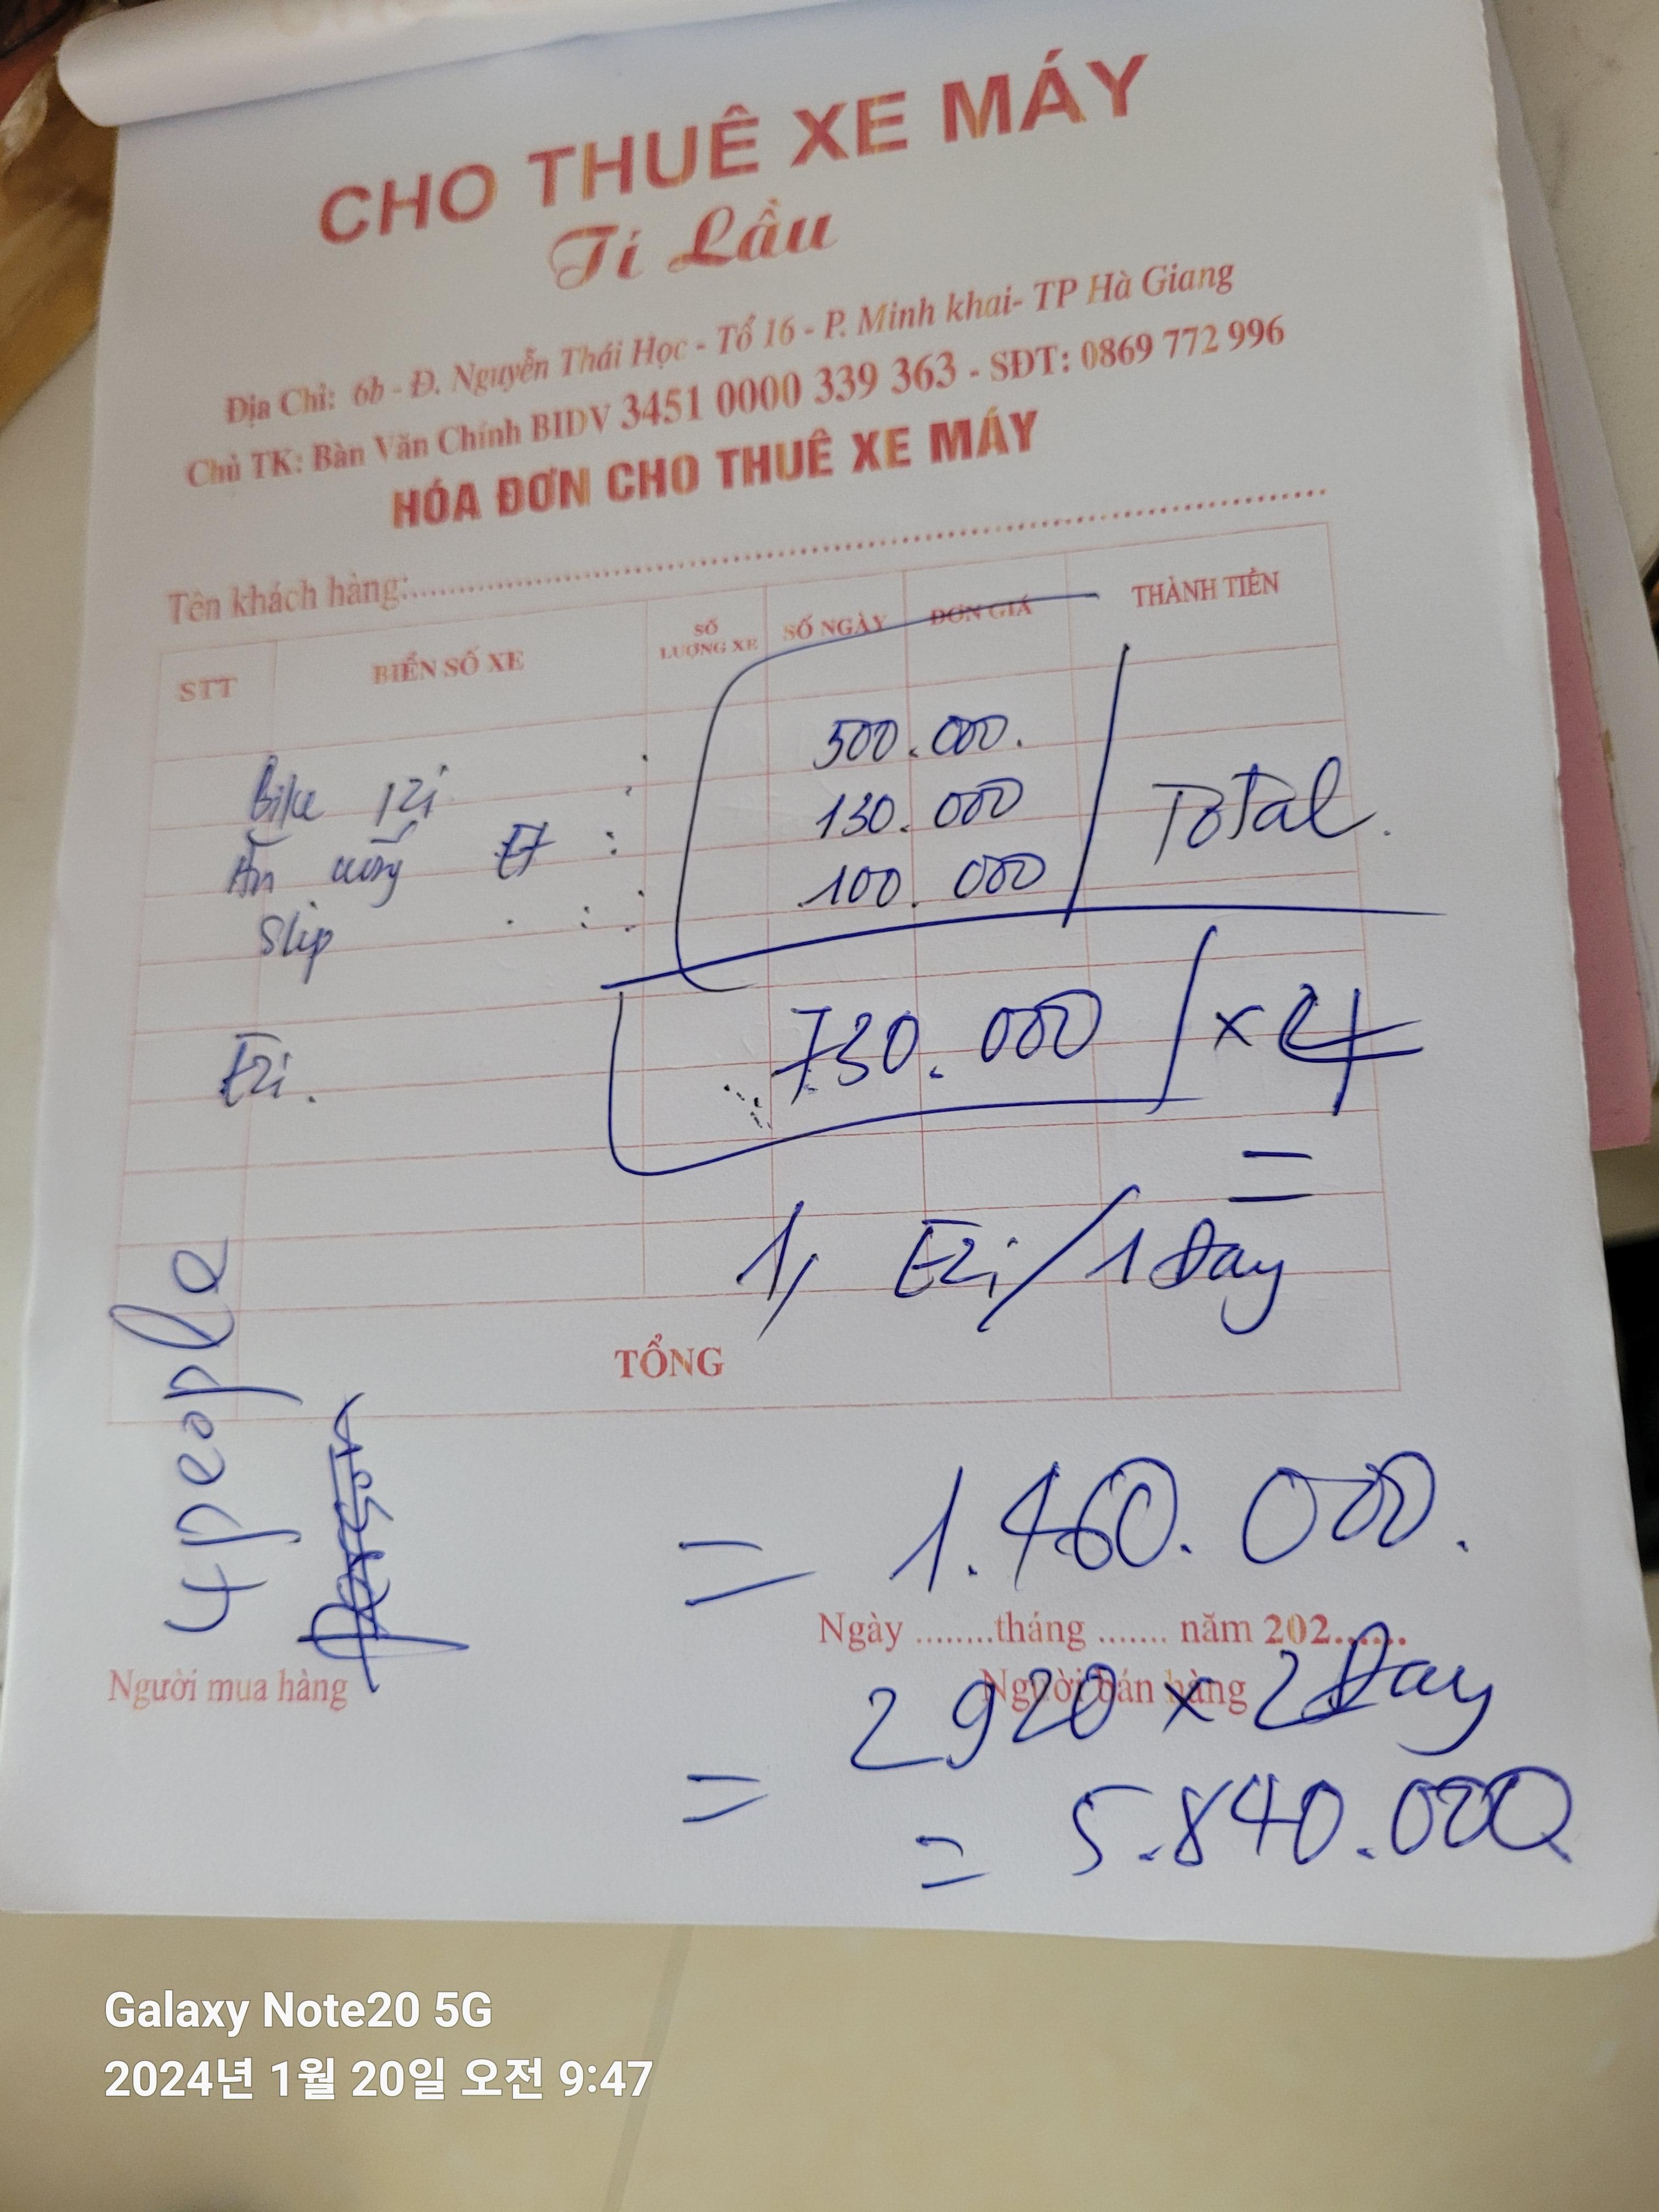 CHO THUÊ XE MÁY
Tí Lầu
Địa Chỉ: 6b - Đ. Nguyễn Thái Học - Tổ 16 - P. Minh khai- TP Hà Giang
Chủ TK: Bàn Văn Chính BIDV 3451 0000 339 363 - SĐT: 0869 772 996
HÓA ĐƠN CHO THUÊ XE MÁY
Tên khách hàng:
STT BIỂN SỐ XE SỐ LƯỢNG XE SỐ NGÀY ĐƠN GIÁ THÀNH TIỀN
Bike : 500.000.
Ăn uống : 130.000 Total.
Slip : 100.000
Ezi. 730.000 x
=
1, Ezi/1 Day
TỔNG
4 people
= 1.460.000.
Ngày ........tháng ....... năm 202.......
Người mua hàng Người bán hàng
= 2920 x 2 Day
= 5.840.000
Galaxy Note20 5G
2024년 1월 20일 오전 9:47